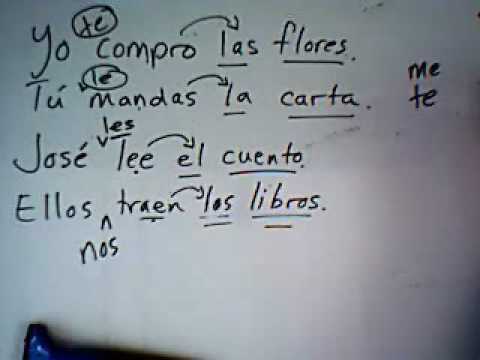 te
Yo compro las flores.
le
Tú mandas la carta.
me
te
les
José lee el cuento.
Ellos traen los libros.
nos